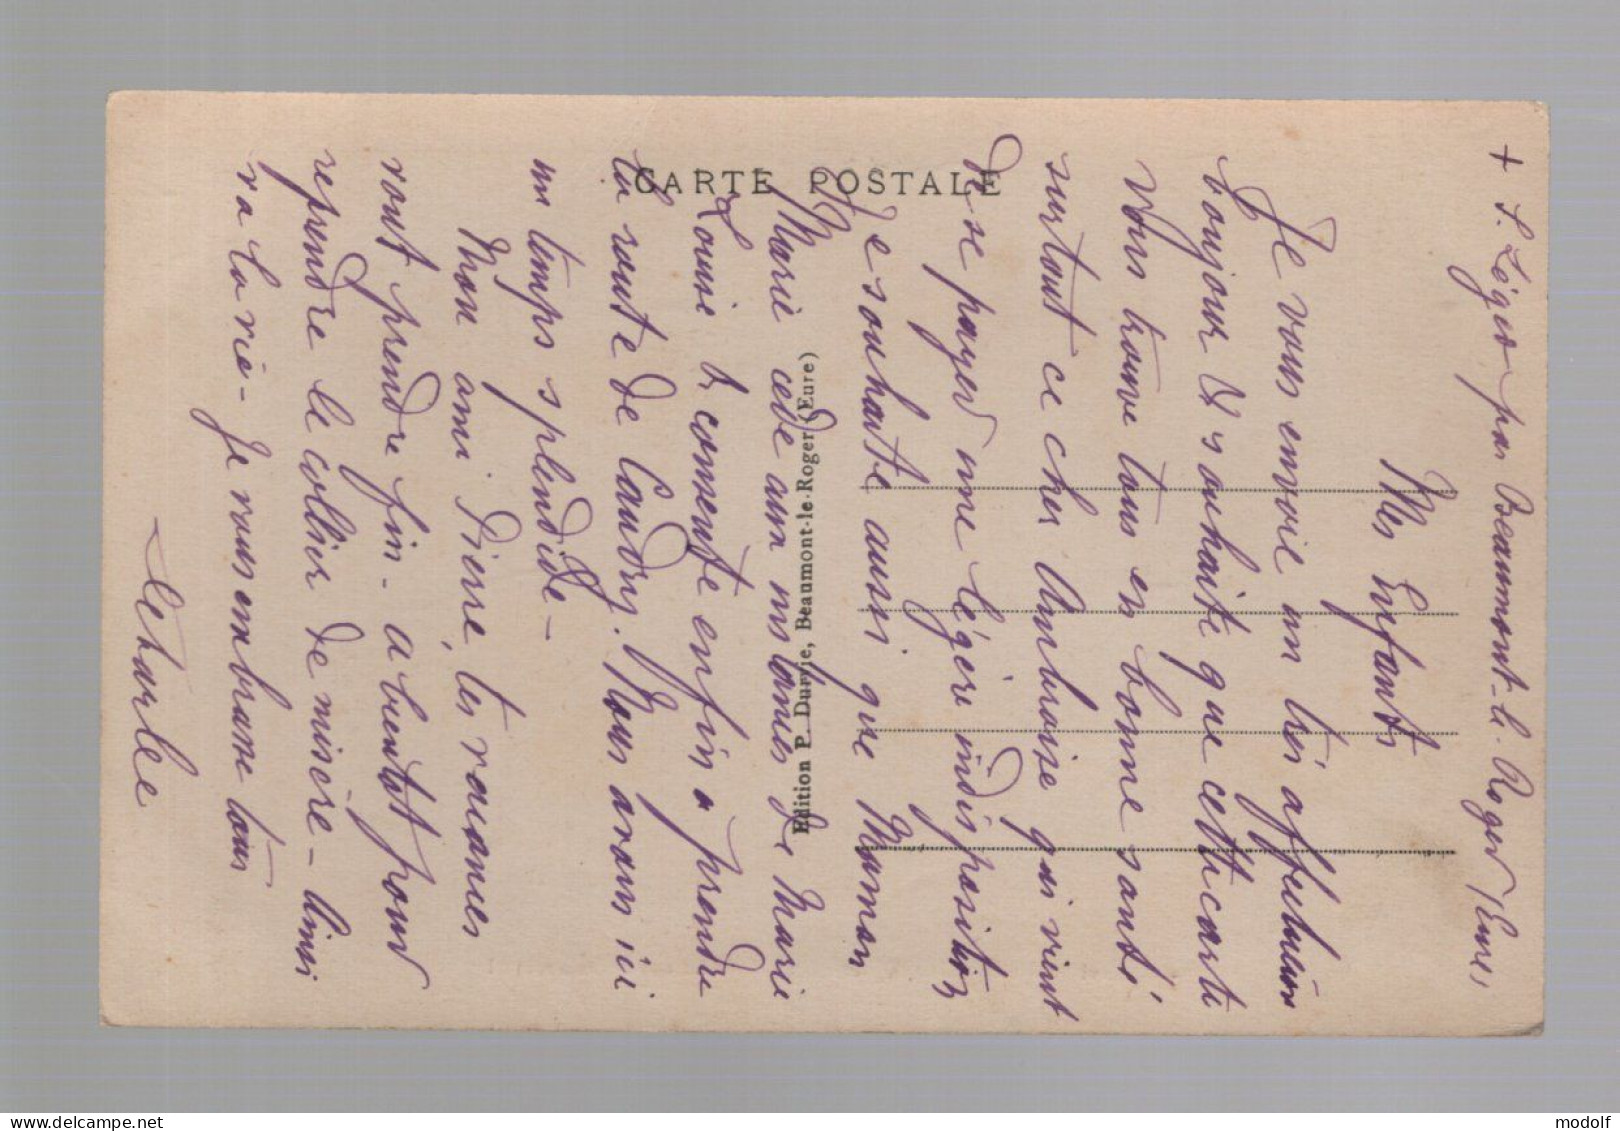 + S. Léger par Beaumont-le-Roger (Eure)
Mes Enfants
Je vous envoie un bés affectueux
bonjour & souhaite que cette carte
vous trouve tous en bonne santé
surtout ce cher Ambroise qui vient
de se payer une légère indisposition
Je souhaite aussi que Maman
Marie cède aux instances de Marie
Louise & consente enfin a prendre
la route de Caudry. Nous avons ici
un temps splendide -
Mon ami Pierre, tes vacances
vont prendre fin - a bientot pour
reprendre le collier de misère - Ainsi
va la vie - Je vous embrasse tous
Charles
CARTE POSTALE
Edition P. Durvie, Beaumont-le-Roger (Eure)
modolf